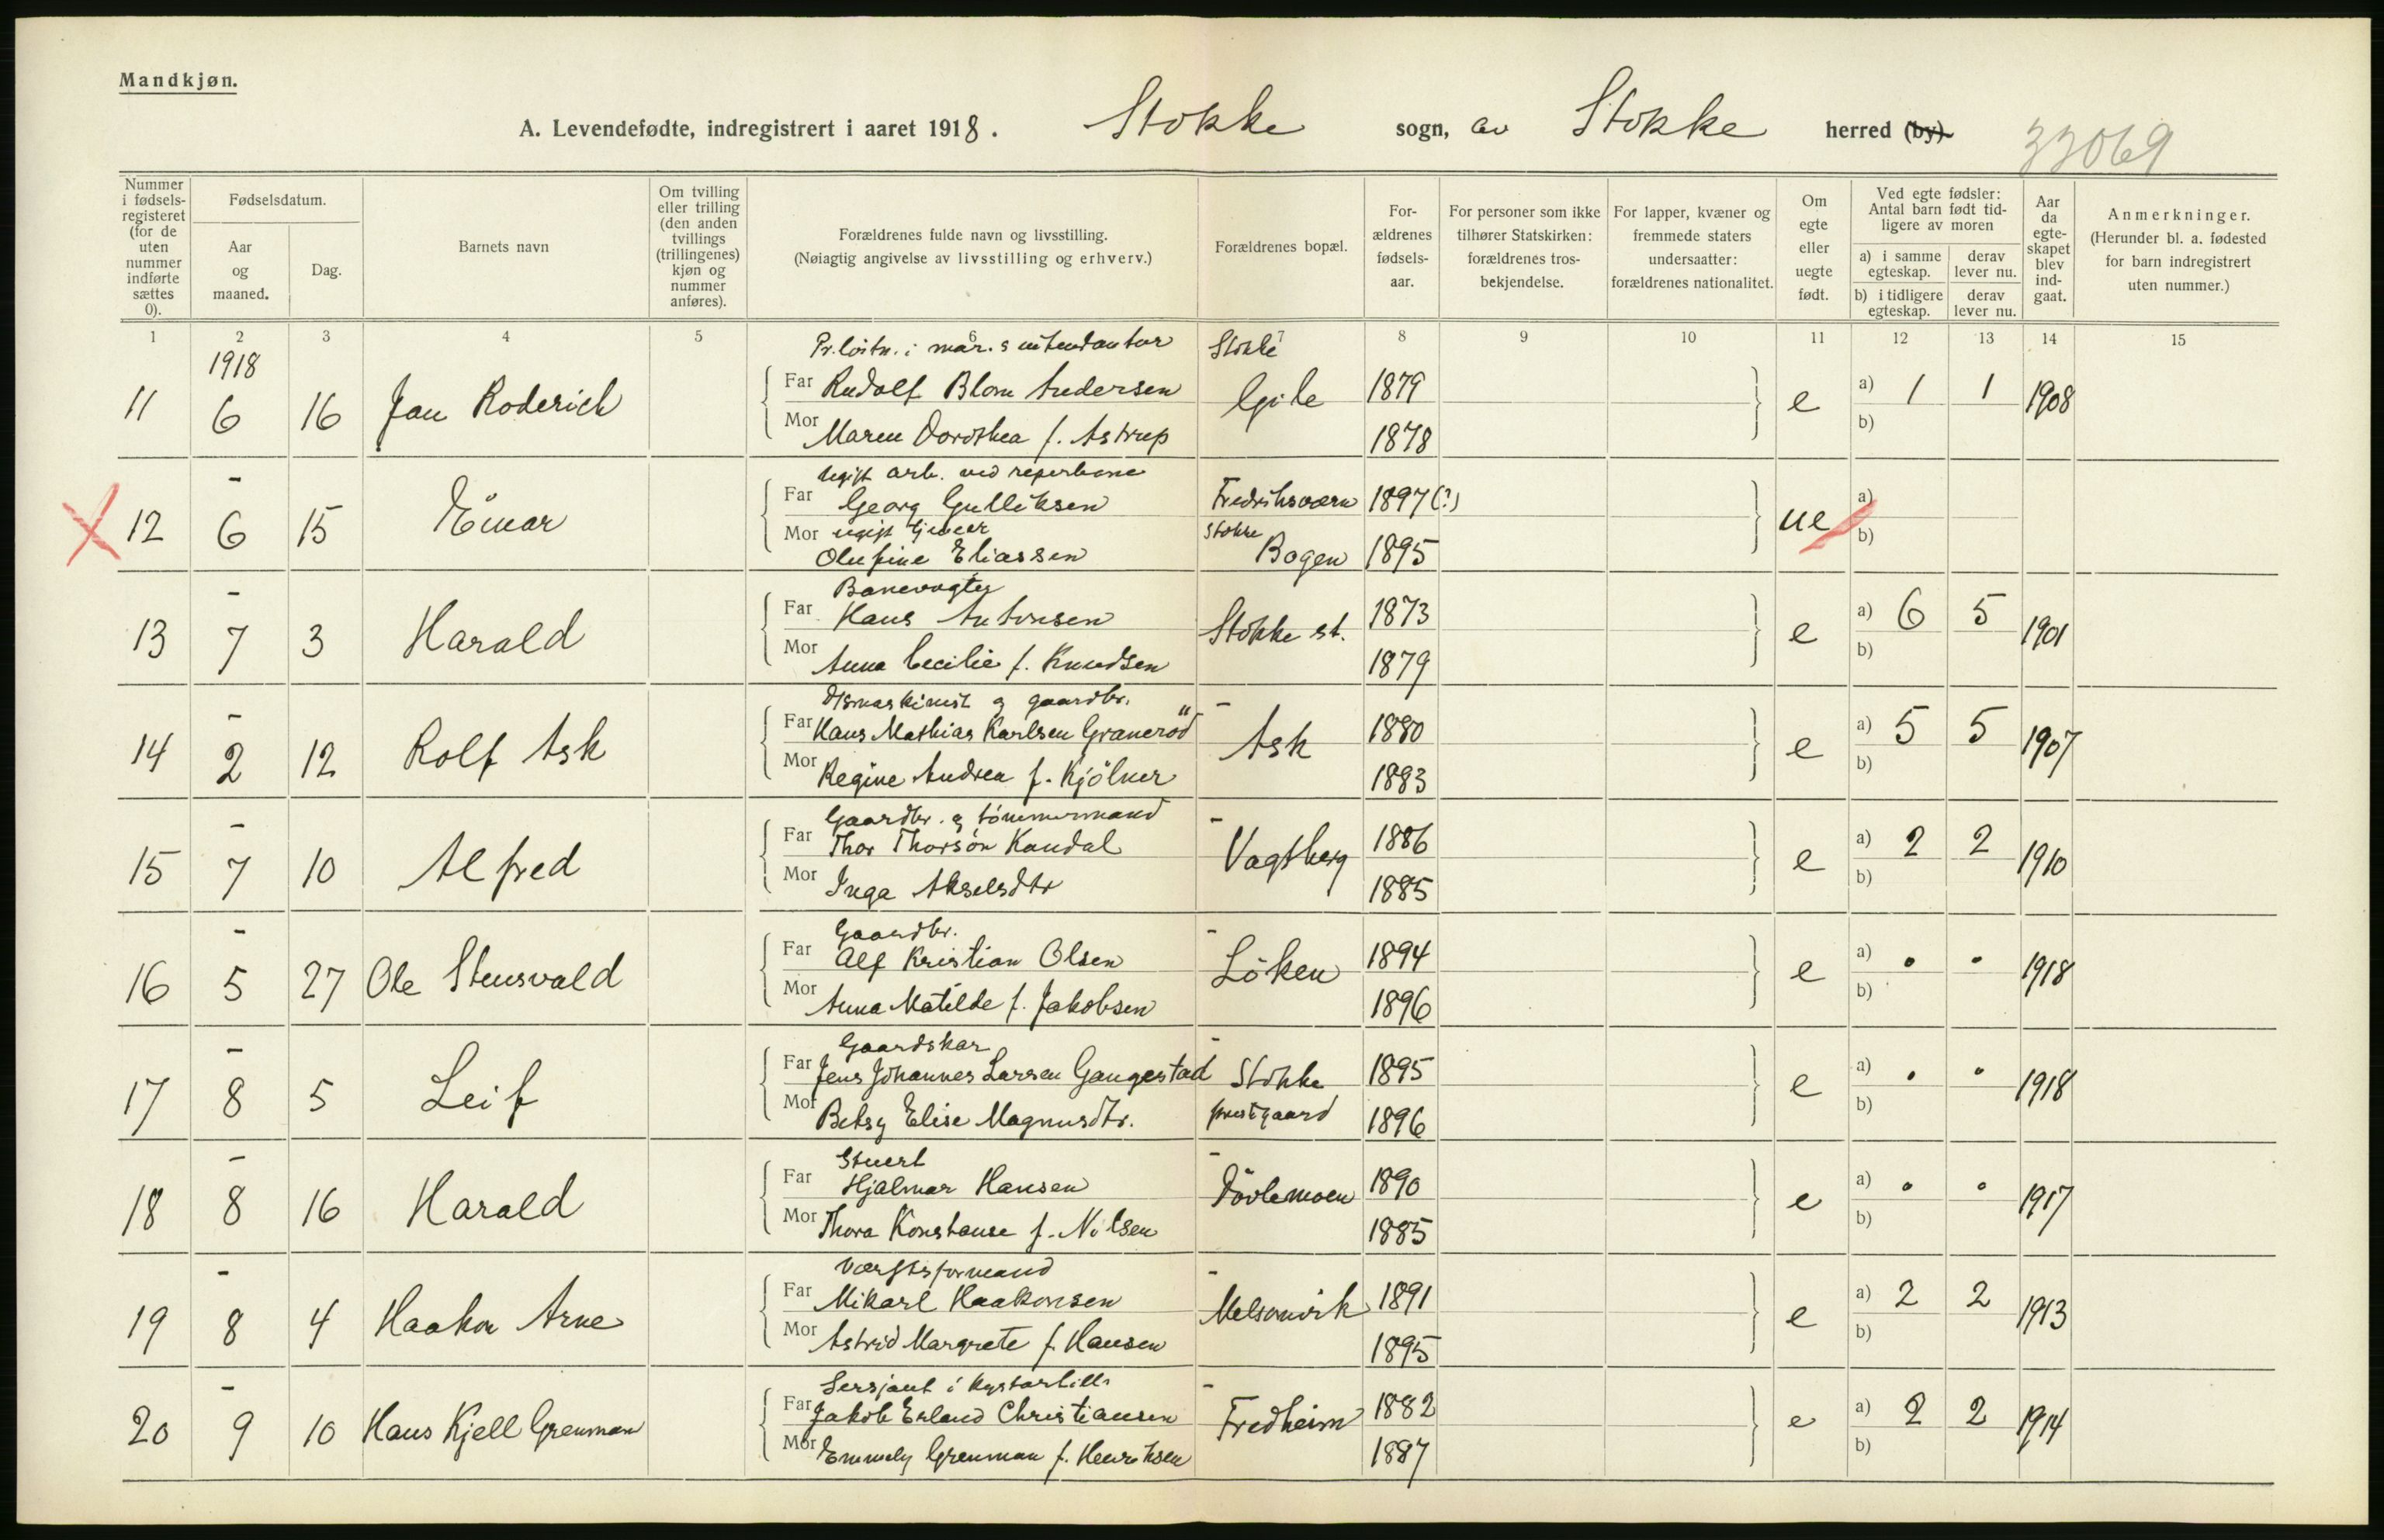 Mandkjøn.
A. Levendefødte, indregistrert i aaret 1918. Stokke sogn, av Stokke herred (by). 33069
Nummer i fødsels-registeret (for de uten nummer indførte sættes 0).
Fødselsdatum.
Aar og maaned.
Dag.
Barnets navn
Om tvilling eller trilling (den anden tvillings (trillingenes) kjøn og nummer anføres).
Forældrenes fulde navn og livsstilling.
(Nøiagtig angivelse av livsstilling og erhverv.)
Forældrenes bopæl.
For-ældrenes fødsels-aar.
For personer som ikke tilhører Statskirken: forældrenes tros-bekjendelse.
For lapper, kvæner og fremmede staters undersaatter: forældrenes nationalitet.
Om egte eller uegte født.
Ved egte fødsler: Antal barn født tid-ligere av moren
a) i samme egteskap.
derav lever nu.
b) i tidligere egteskap.
derav lever nu.
Aar da egte-skapet blev ind-gaat.
Anmerkninger.
(Herunder bl. a. fødested for barn indregistrert uten nummer.)
1 2 3 4 5 6 7 8 9 10 11 12 13 14 15
1918 Pr.løitn. i mar.s intendantur Stokke
11 6 16 Jan Roderich Far Rudolf Blom Andersen Gile 1879 e a) 1 1 1908
Mor Maren Dorothea f. Astrup 1878 b)
- Ugift arb. ved reperbane
12 6 15 Einar Far Georg Gulliksen Fredriksværn 1897(?) ue a)
Mor ugift tjener Stokke
Olufine Eliassen Bogen 1895 b)
- Banevogter
13 7 3 Harald Far Hans Antonsen Stokke st. 1873 e a) 6 5 1901
Mor Anna Cecilie f. Knudsen 1879 b)
- gaardbr. -
14 2 12 Rolf Ask Far Hans Mathias Karlsen Graneröd Ask 1880 e a) 5 5 1907
Mor Regine Andrea f. Kjölner 1883 b)
- Gaardbr. og tömmermand -
15 7 10 Alfred Far Thor Thorsön Kandal Vagtberg 1886 e a) 2 2 1910
Mor Inga Akselsdtr 1885 b)
- Gaardbr. -
16 5 27 Ole Stensvald Far Alf Kristian Olsen Löken 1894 e a) • • 1918
Mor Anna Matilde f. Jakobsen 1896 b)
- Gaardskar -
17 8 5 Leif Far Jens Johannes Larsen Gaugestad Stokke 1895 e a) • • 1918
Mor Betsy Elise Magnusdtr. prestgaard 1896 b)
- Stuert -
18 8 16 Harald Far Hjalmar Hansen Dövlemoen 1890 e a) • • 1917
Mor Thora Konstanse f. Nilsen 1885 b)
- Værftsformand -
19 8 4 Haakon Arne Far Mikael Haakonsen Melsomvik 1891 e a) 2 2 1913
Mor Astrid Margrete f. Hansen 1895 b)
- Sersjant i kystartill. -
20 9 10 Hans Kjell Grenman Far Jakob Erland Christiansen Fredheim 1882 e a) 2 2 1914
Mor Emmely Grenman f. Henriksen 1887 b)